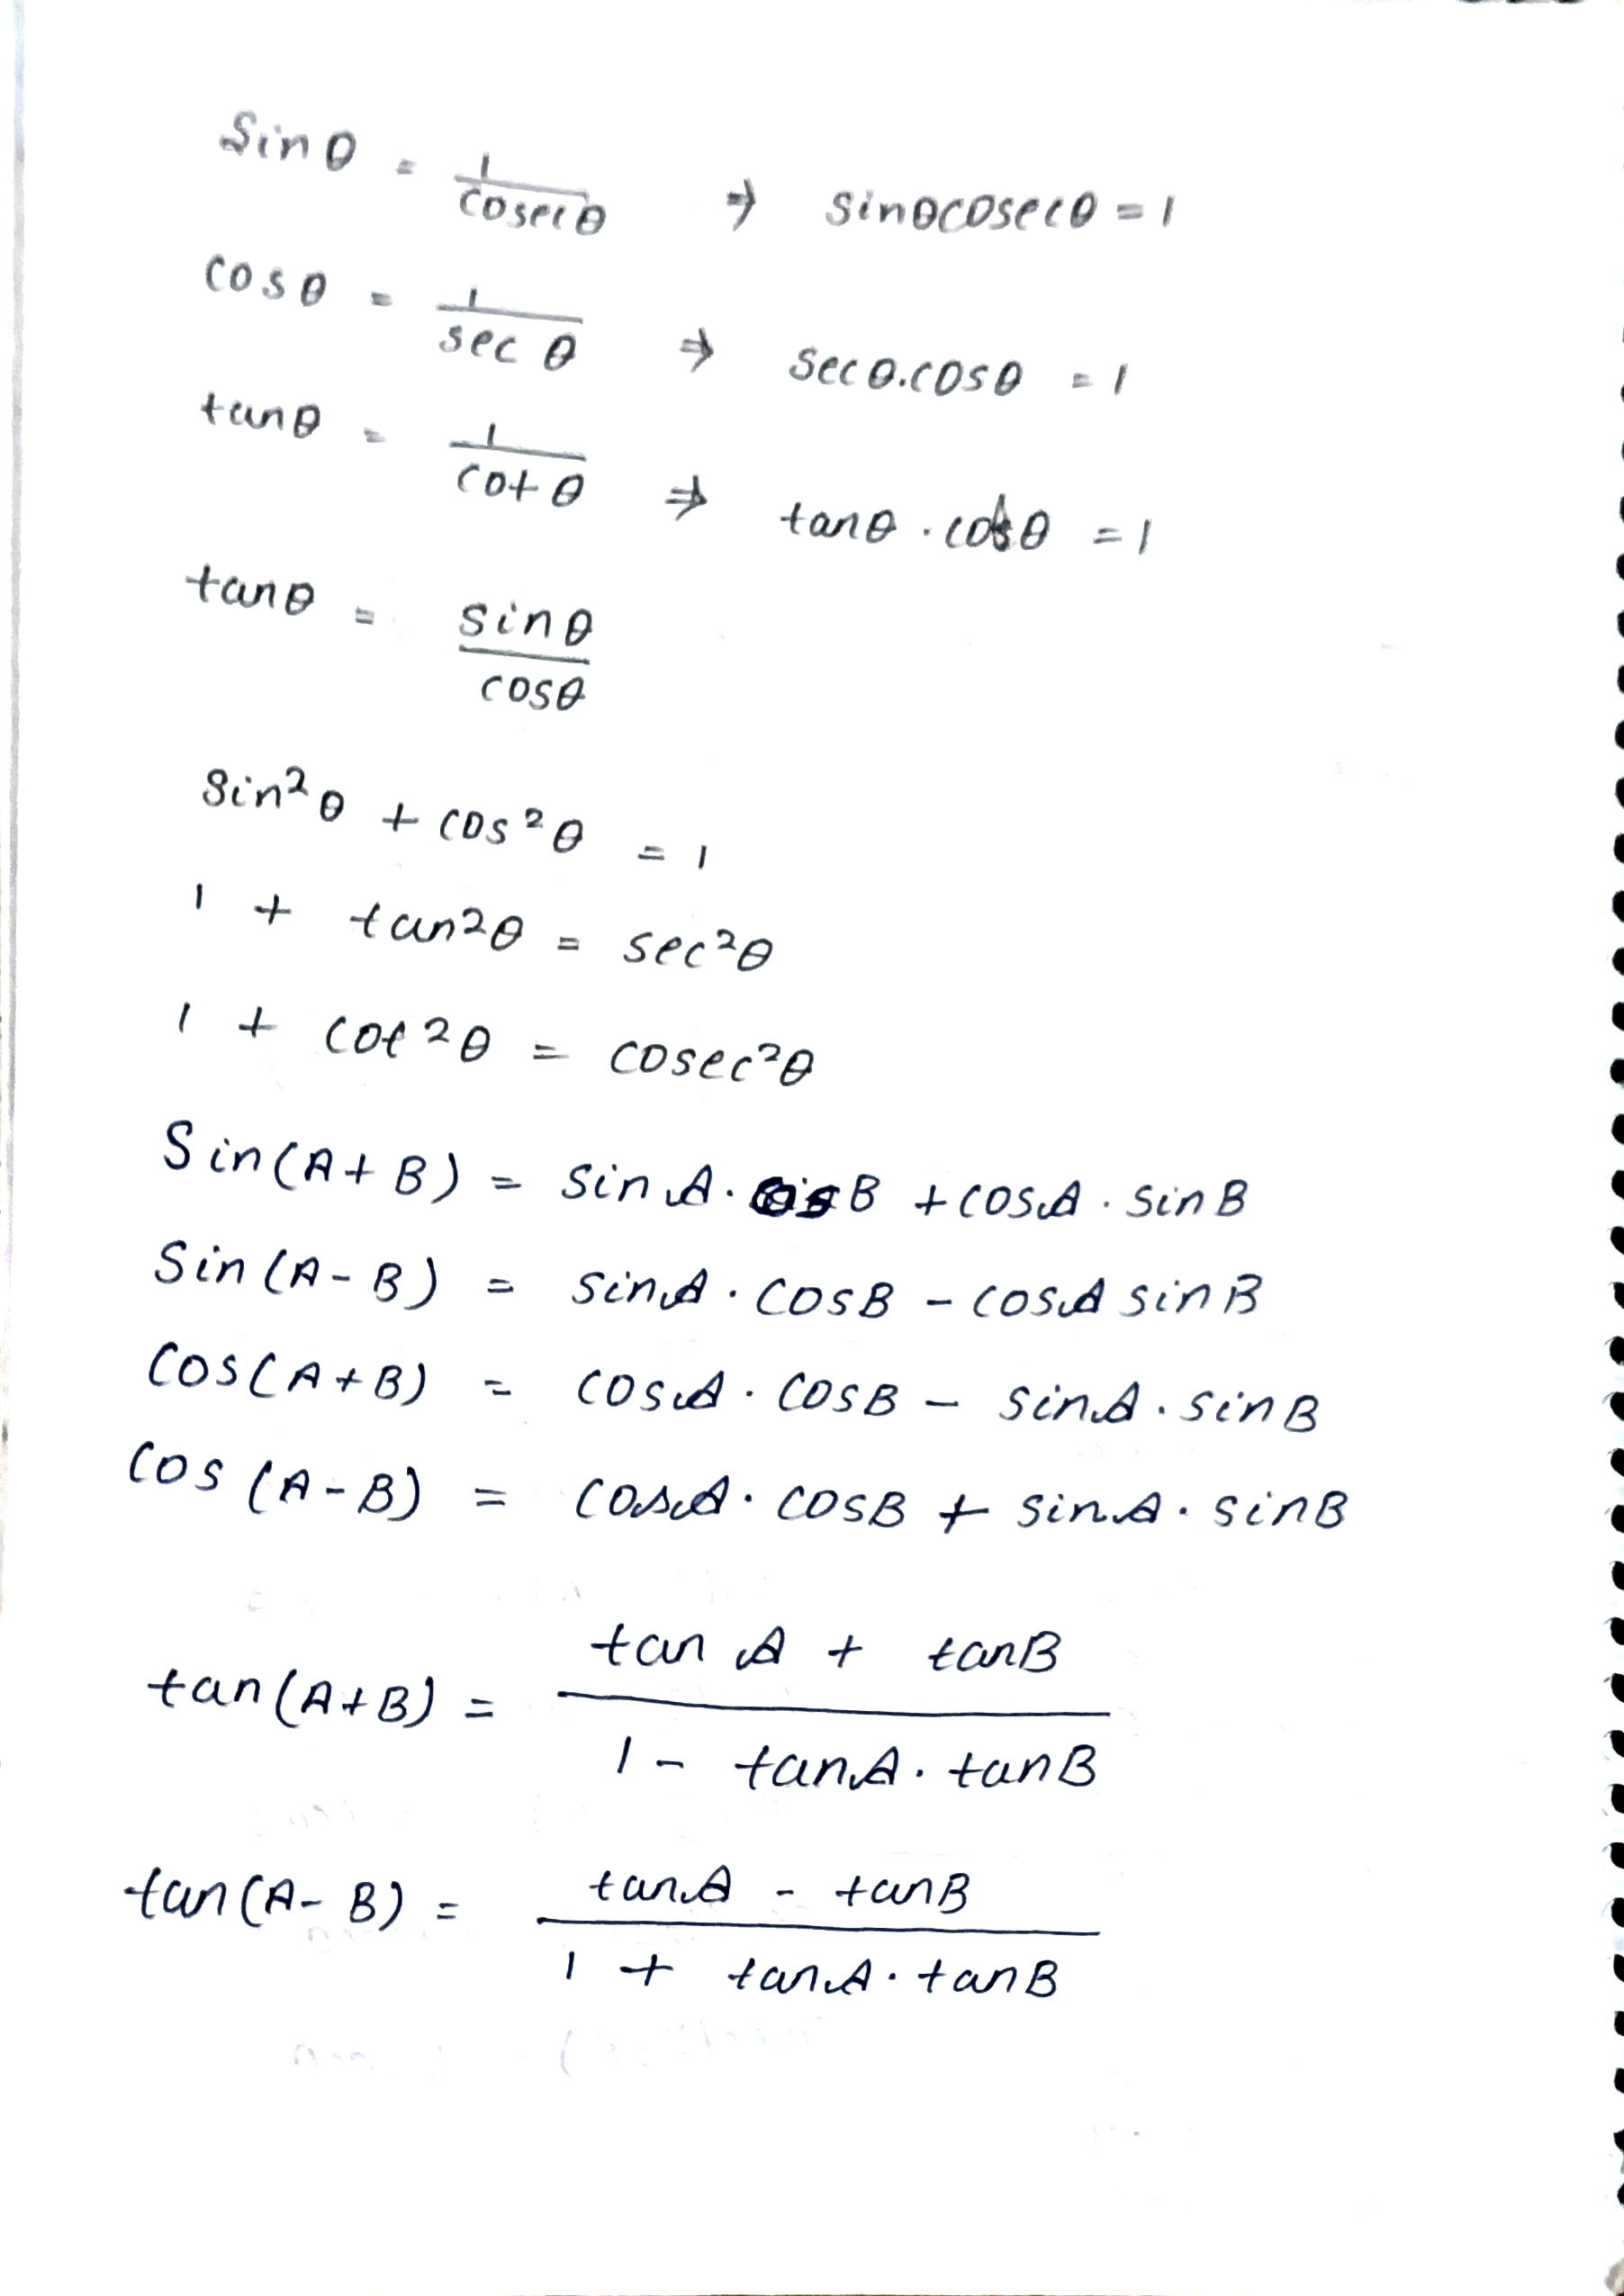 Sinθ = 1/cosecθ ⇒ sinθcosecθ = 1
cosθ = 1/sec θ ⇒ secθ.cosθ = 1
tanθ = 1/cot θ ⇒ tanθ . cotθ = 1
tanθ = sinθ/cosθ
Sin²θ + cos²θ = 1
1 + tan²θ = sec²θ
1 + cot²θ = cosec²θ
Sin(A+B) = sinA. cosB + cosA . sinB
Sin(A-B) = sinA . cosB - cosA sinB
Cos(A+B) = cosA . cosB - sinA . sinB
Cos(A-B) = cosA . cosB + sinA . sinB
tan(A+B) = tan A + tanB / 1 - tanA . tanB
tan(A-B) = tanA - tanB / 1 + tanA . tanB